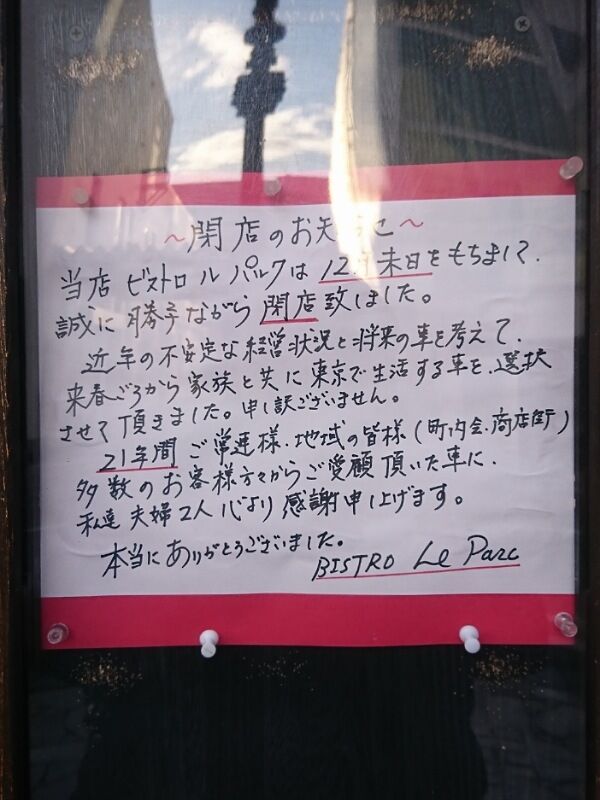 ～閉店のお知らせ～
当店 ビストロ ル パルクは 12月末日をもちまして、
誠に勝手ながら 閉店致しました。
近年の不安定な経営状況と将来の事を考えて、
来春ごろから家族と共に東京で生活する事を、選択
させて頂きました。申し訳ございません。
21年間 ご常連様、地域の皆様(町内会、商店街)
多数のお客様方々からご愛顧頂いた事に、
私達夫婦2人心より感謝申し上げます。
本当にありがとうございました。
BISTRO Le Parc